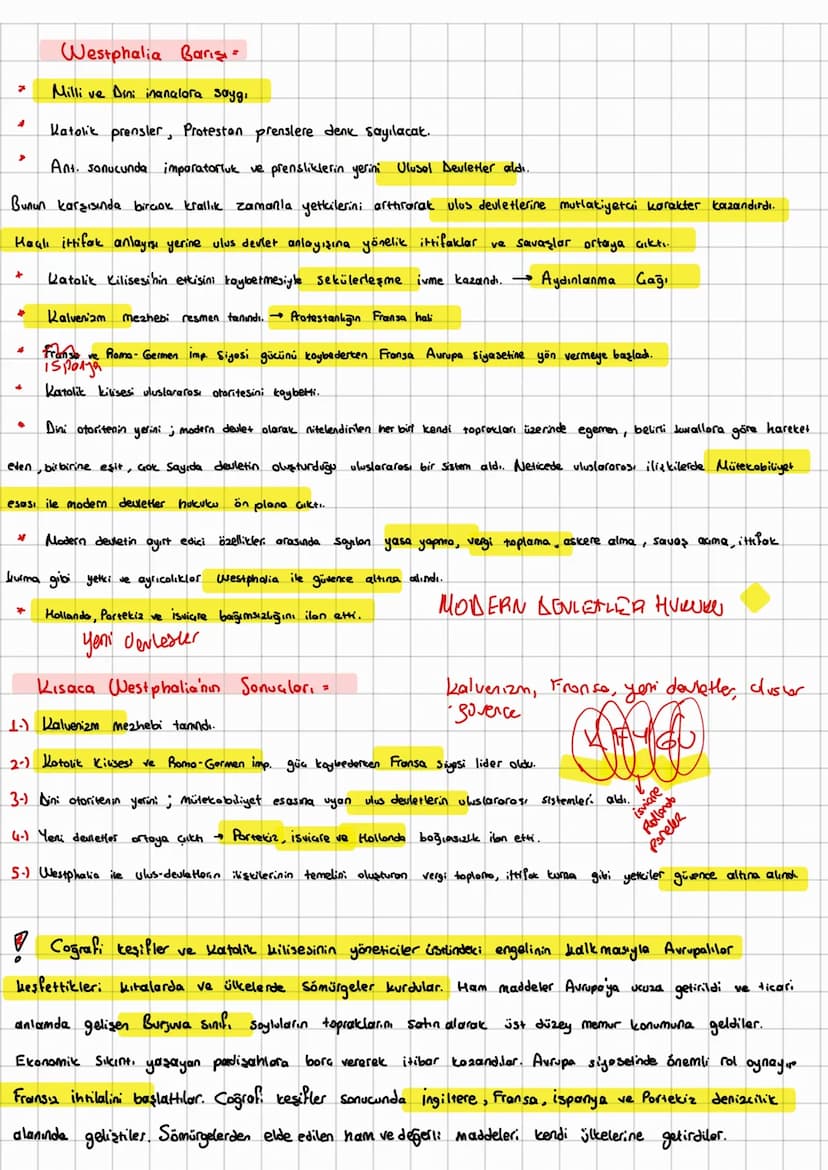 Westphalia Barışı =
* Milli ve Dini inançlara saygı
* Katolik prensler, Protestan prenslere denk sayılacak.
* Ant. sonucunda imparatorluk ve prensliklerin yerini Ulusal Devletler aldı.
Bunun karşısında birçok krallık zamanla yetkilerini arttırarak ulus devletlerine mutlakiyetçi karakter kazandırdı.
Haçlı ittifak anlayışı yerine ulus devlet anlayışına yönelik ittifaklar ve savaşlar ortaya çıktı.
* Katolik Kilisesi'nin etkisini kaybetmesiyle sekülerleşme ivme kazandı. → Aydınlanma Çağı
* Kalvenizm mezhebi resmen tanındı. → Protestanlığın Fransa hali
* Fransa ve Roma-Germen imp. Siyasi gücünü kaybederken Fransa Avrupa siyasetine yön vermeye başladı.
ispanya
* Katolik kilisesi uluslararası otoritesini kaybetti.
* Dini otoritenin yerini ; modern devlet olarak nitelendirilen her biri kendi toprakları üzerinde egemen, belirli kurallara göre hareket
eden, birbirine eşit, çok sayıda devletin oluşturduğu uluslararası bir sistem aldı. Neticede uluslararası ilişkilerde Mütekabiliyet
esası ile modern devletler hukuku ön plana çıktı.
* Modern devletin ayırt edici özellikler arasında sayılan yasa yapma, vergi toplama, askere alma, savaş açma, ittifak
kurma gibi yetki ve ayrıcalıklar Westphalia ile güvence altına alındı.
* Hollanda, Portekiz ve isviçre bağımsızlığını ilan etti.
MODERN DEVLETLER HUKUKU
yeni devletler
Kısaca Westphalia'nın Sonuçları =
kalvenizm, Fransa, yeni devletler, uluslar
güvence
1-) Kalvenizm mezhebi tanındı.
K F Y G U
2-) Katolik Kilisesi ve Roma-Germen imp. güç kaybederken Fransa siyasi lider oldu.
3-) Dini otoritenin yerini ; mütekabiliyet esasına uyan ulus devletlerin uluslararası sistemleri aldı.
isviçre
Hollanda
4-) Yeni devletler ortaya çıktı → Portekiz, isviçre ve Hollanda bağımsızlık ilan etti.
5-) Westphalia ile ulus-devletlerin ilişkilerinin temelini oluşturan vergi toplama, ittifak kurma gibi yetkiler güvence altına alındı
! Coğrafi keşifler ve Katolik kilisesinin yöneticiler üstündeki engelinin kalkmasıyla Avrupalılar
keşfettikleri kıtalarda ve ülkelerde Sömürgeler kurdular. Ham maddeler Avrupa'ya ucuza getirildi ve ticari
anlamda gelişen Burjuva sınıfı, soyluların topraklarını satın alarak üst düzey memur konumuna geldiler.
Ekonomik sıkıntı yaşayan padişahlara borç vererek itibar kazandılar. Avrupa siyasetinde önemli rol oynayıp
Fransız ihtilalini başlattılar. Coğrafi keşifler sonucunda ingiltere, Fransa, ispanya ve Portekiz denizcilik
alanında geliştiler. Sömürgelerden elde edilen ham ve değerli maddeleri kendi ülkelerine getirdiler.